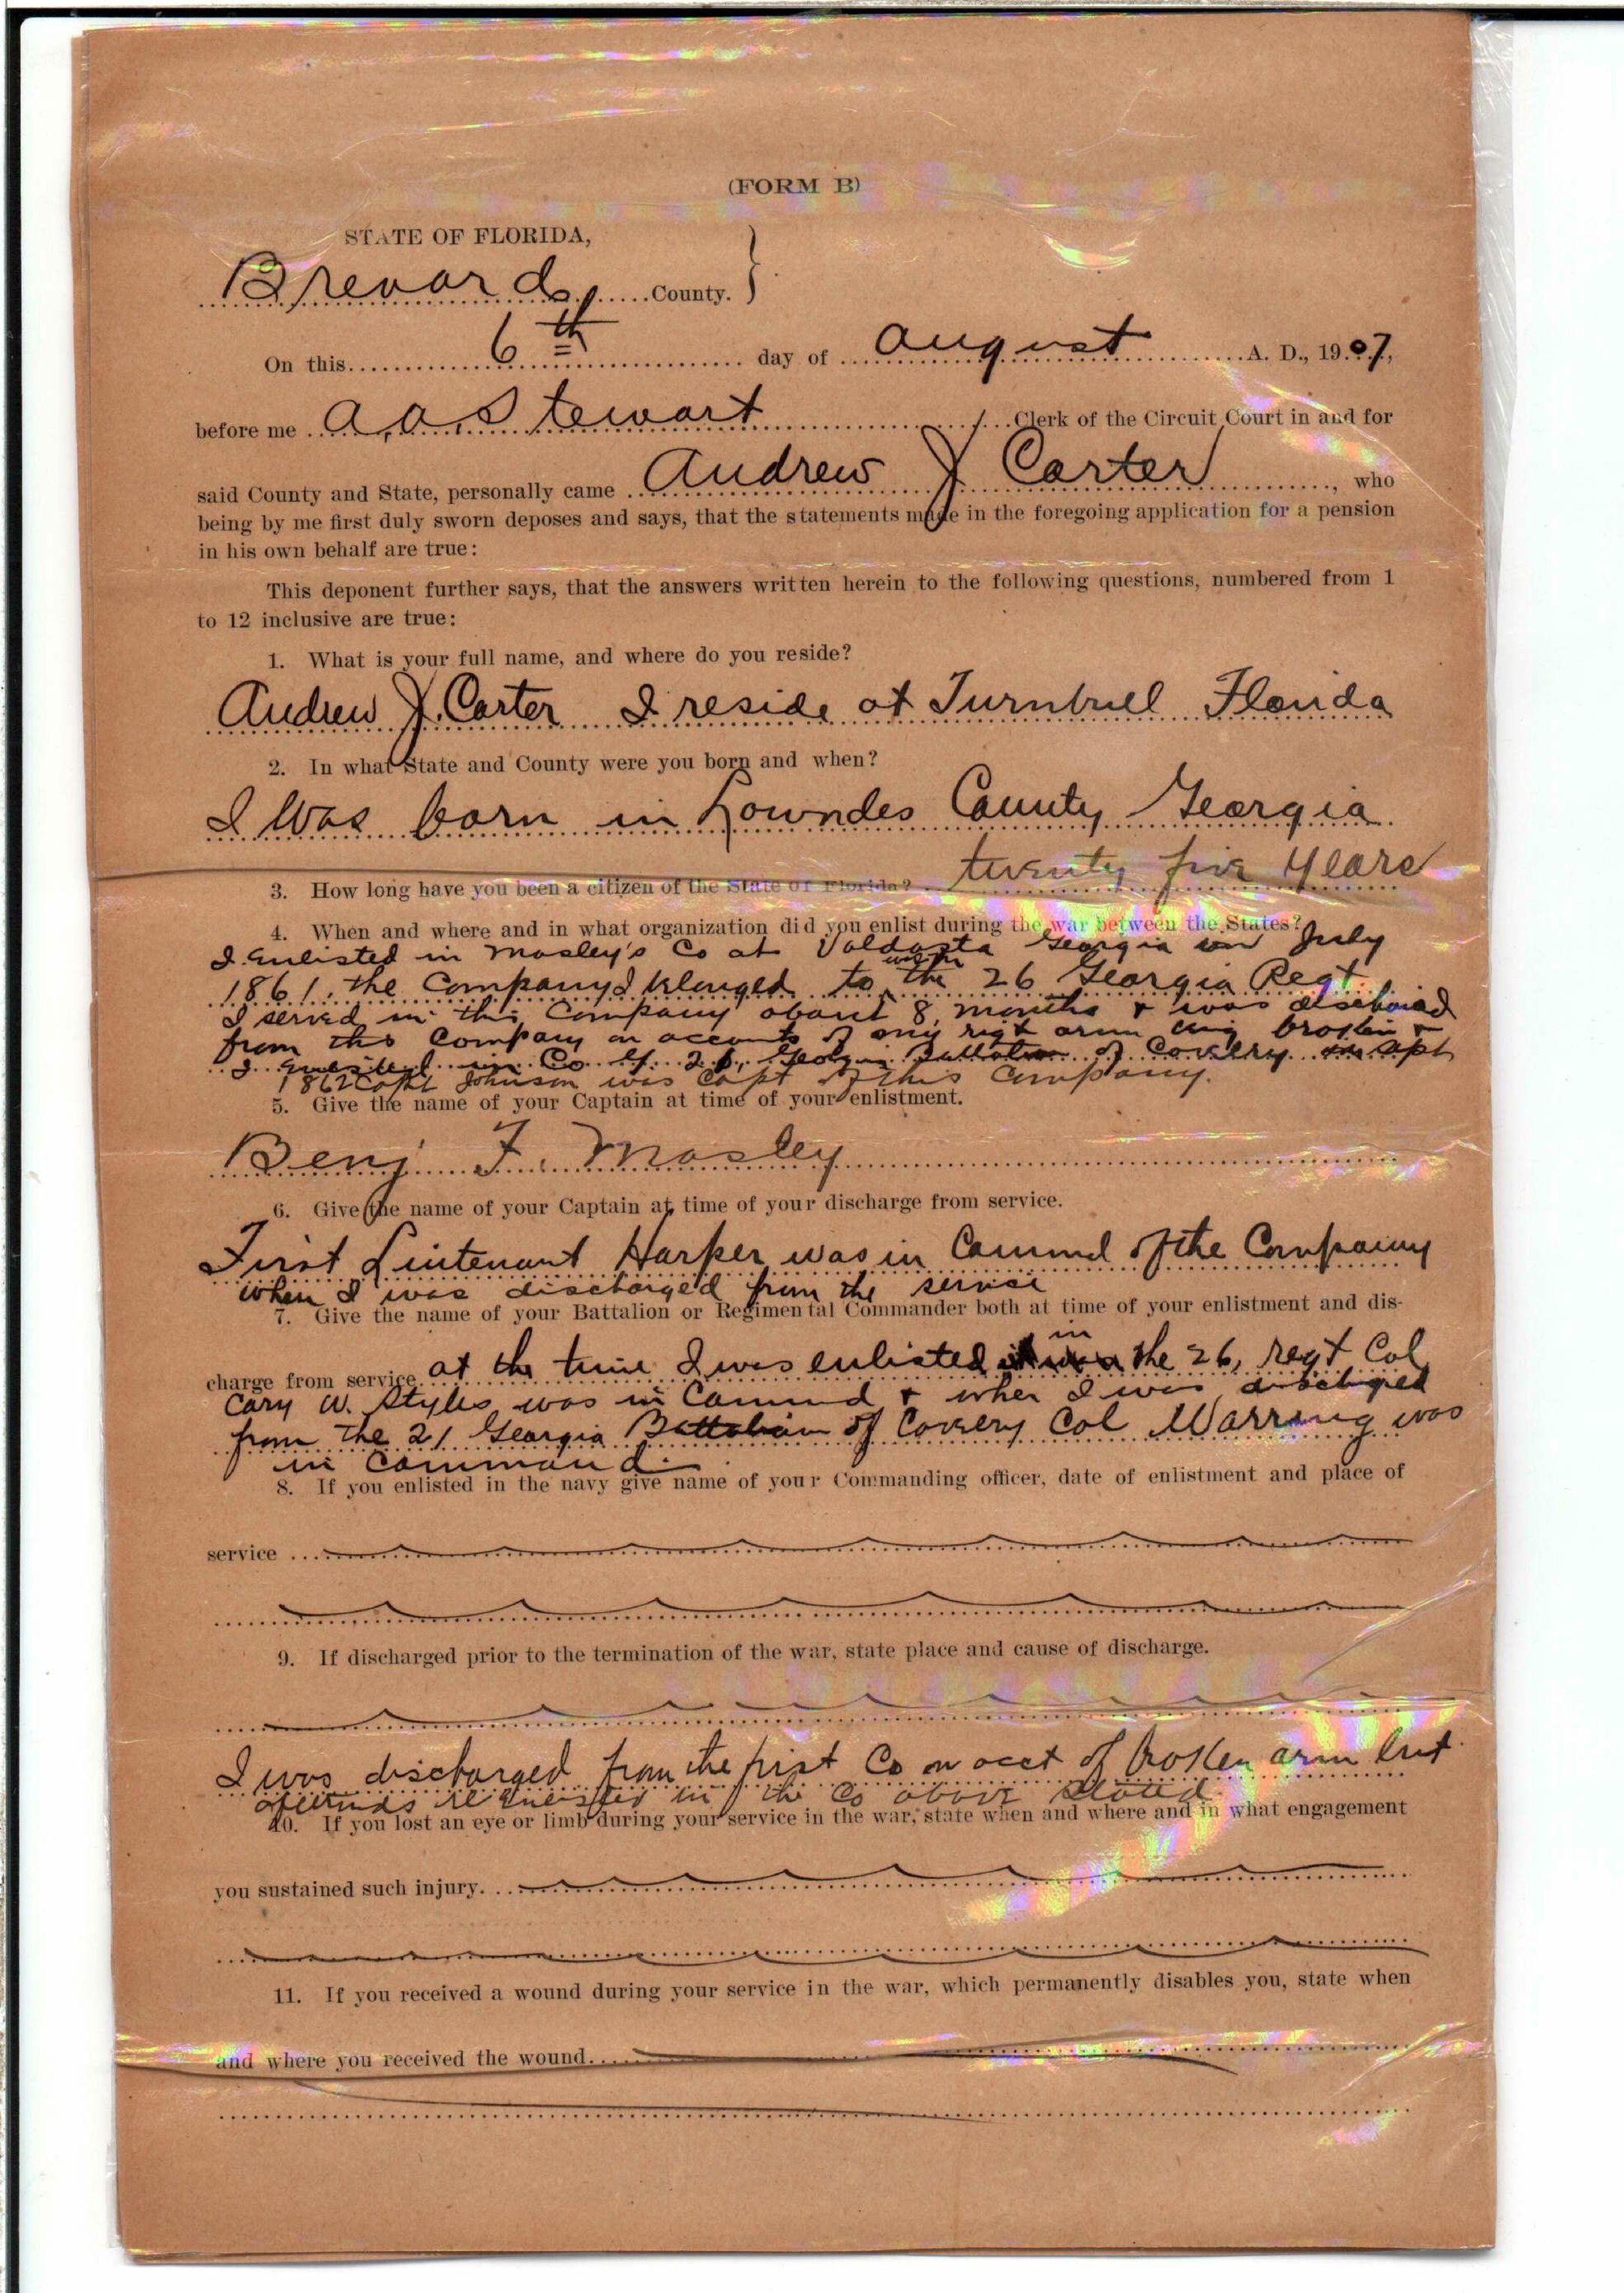 (FORM B)
STATE OF FLORIDA,
Brevard County. }
On this 6th day of August A. D., 1907,
before me A. A. Stewart, Clerk of the Circuit Court in and for
said County and State, personally came Andrew J Carter, who
being by me first duly sworn deposes and says, that the statements made in the foregoing application for a pension
in his own behalf are true:
This deponent further says, that the answers written herein to the following questions, numbered from 1
to 12 inclusive are true:
1. What is your full name, and where do you reside?
Andrew J. Carter I reside at Turnbull Florida
2. In what State and County were you born and when?
I was born in Lowndes County Georgia
3. How long have you been a citizen of the State of Florida? twenty five years
4. When and where and in what organization did you enlist during the war between the States?
I Enlisted in Mosley's Co at Valdosta Georgia in July
1861. the Company I belonged to the 26 Georgia Regt
I served in this Company about 8 months & was
from this Company on account of my right arm being broken &
I in Co 2 Georgia Battalion of Apt
1862 Capt Johnson was Capt of this Company.
5. Give the name of your Captain at time of your enlistment.
Benj F. Mosley
6. Give the name of your Captain at time of your discharge from service.
First Lintenant Harper was in Commnd of the Company
when I was discharged from the service
7. Give the name of your Battalion or Regimental Commander both at time of your enlistment and dis-
in
charge from service at the time I was enlisted the 26, regt Col
Cary W. Styles was in Commnd & when I was discharged
from the 21 Georgia Battalion of Col Warring was
in command.
8. If you enlisted in the navy give name of your Commanding officer, date of enlistment and place of
service
9. If discharged prior to the termination of the war, state place and cause of discharge.
I was discharged from the first Co on acct of broken arm but
re enlisted in the Co above stated
10. If you lost an eye or limb during your service in the war, state when and where and in what engagement
you sustained such injury.
11. If you received a wound during your service in the war, which permanently disables you, state when
and where you received the wound.